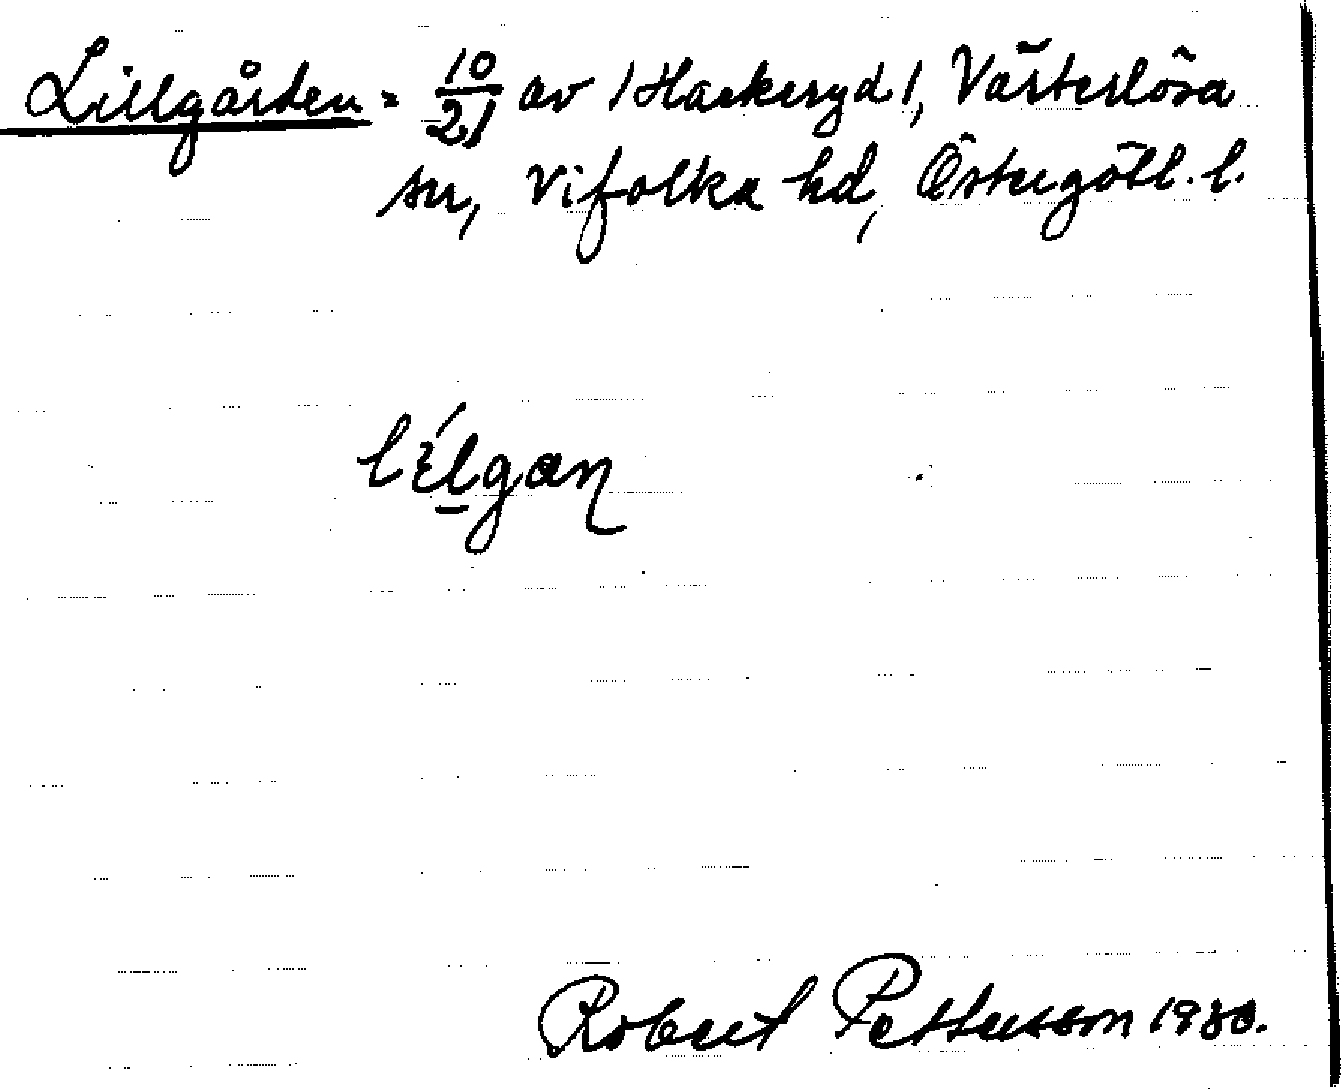 Lillgården = 10/21 av /Hackeryd/, Västerlösa
sn, Vifolka hd, Östergötl. l.
Robert Pettersson 1930.